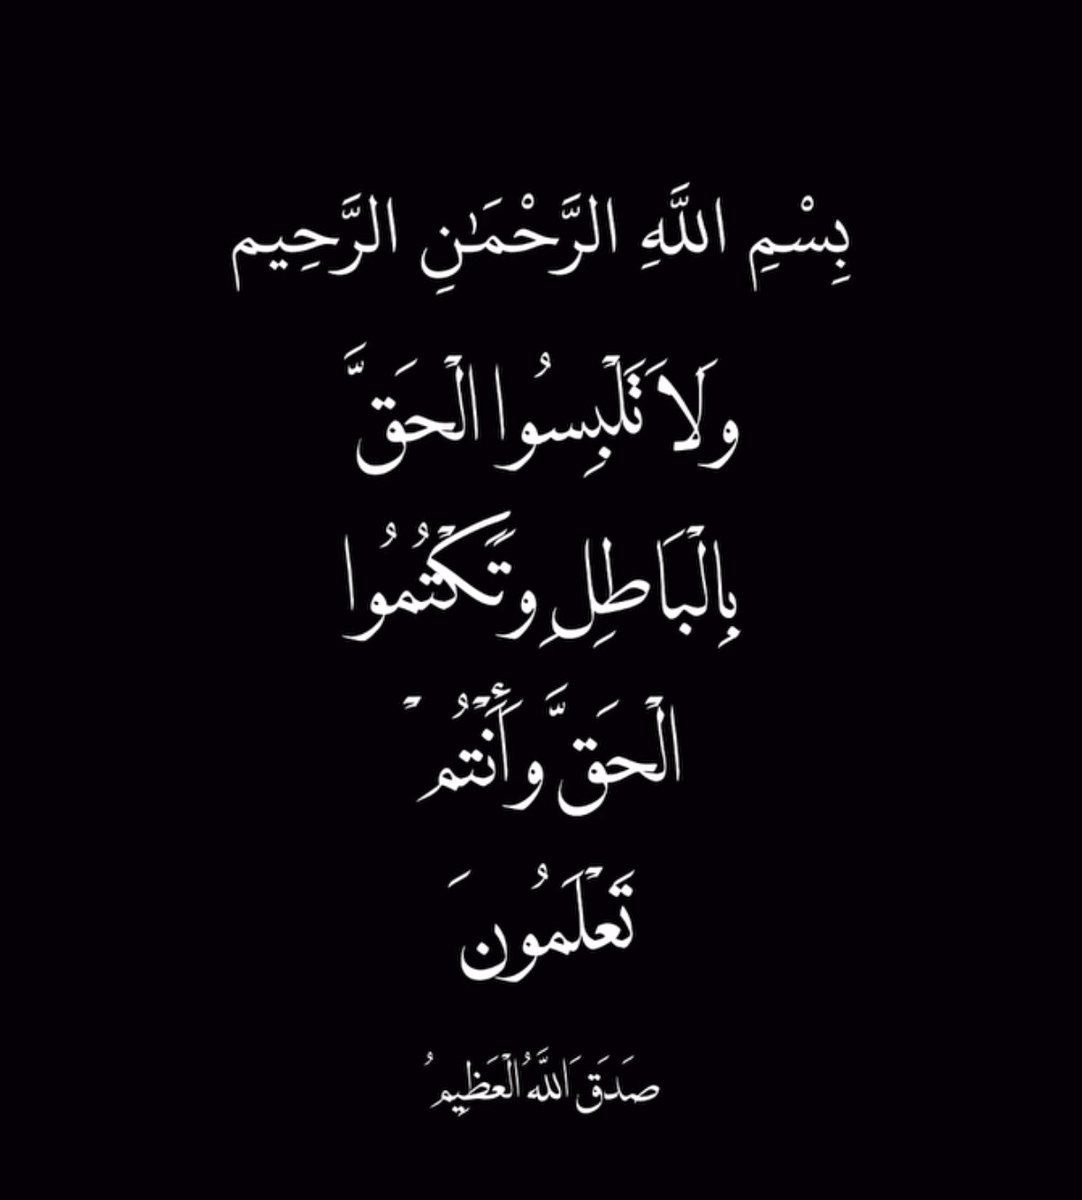 بِسْمِ اللَّهِ الرَّحْمَٰنِ الرَّحِيم
وَلَا تَلْبِسُوا الْحَقَّ
بِالْبَاطِلِ وَتَكْتُمُوا
الْحَقَّ وَأَنْتُمْ
تَعْلَمُونَ
صَدَقَ اللَّهُ الْعَظِيمُ